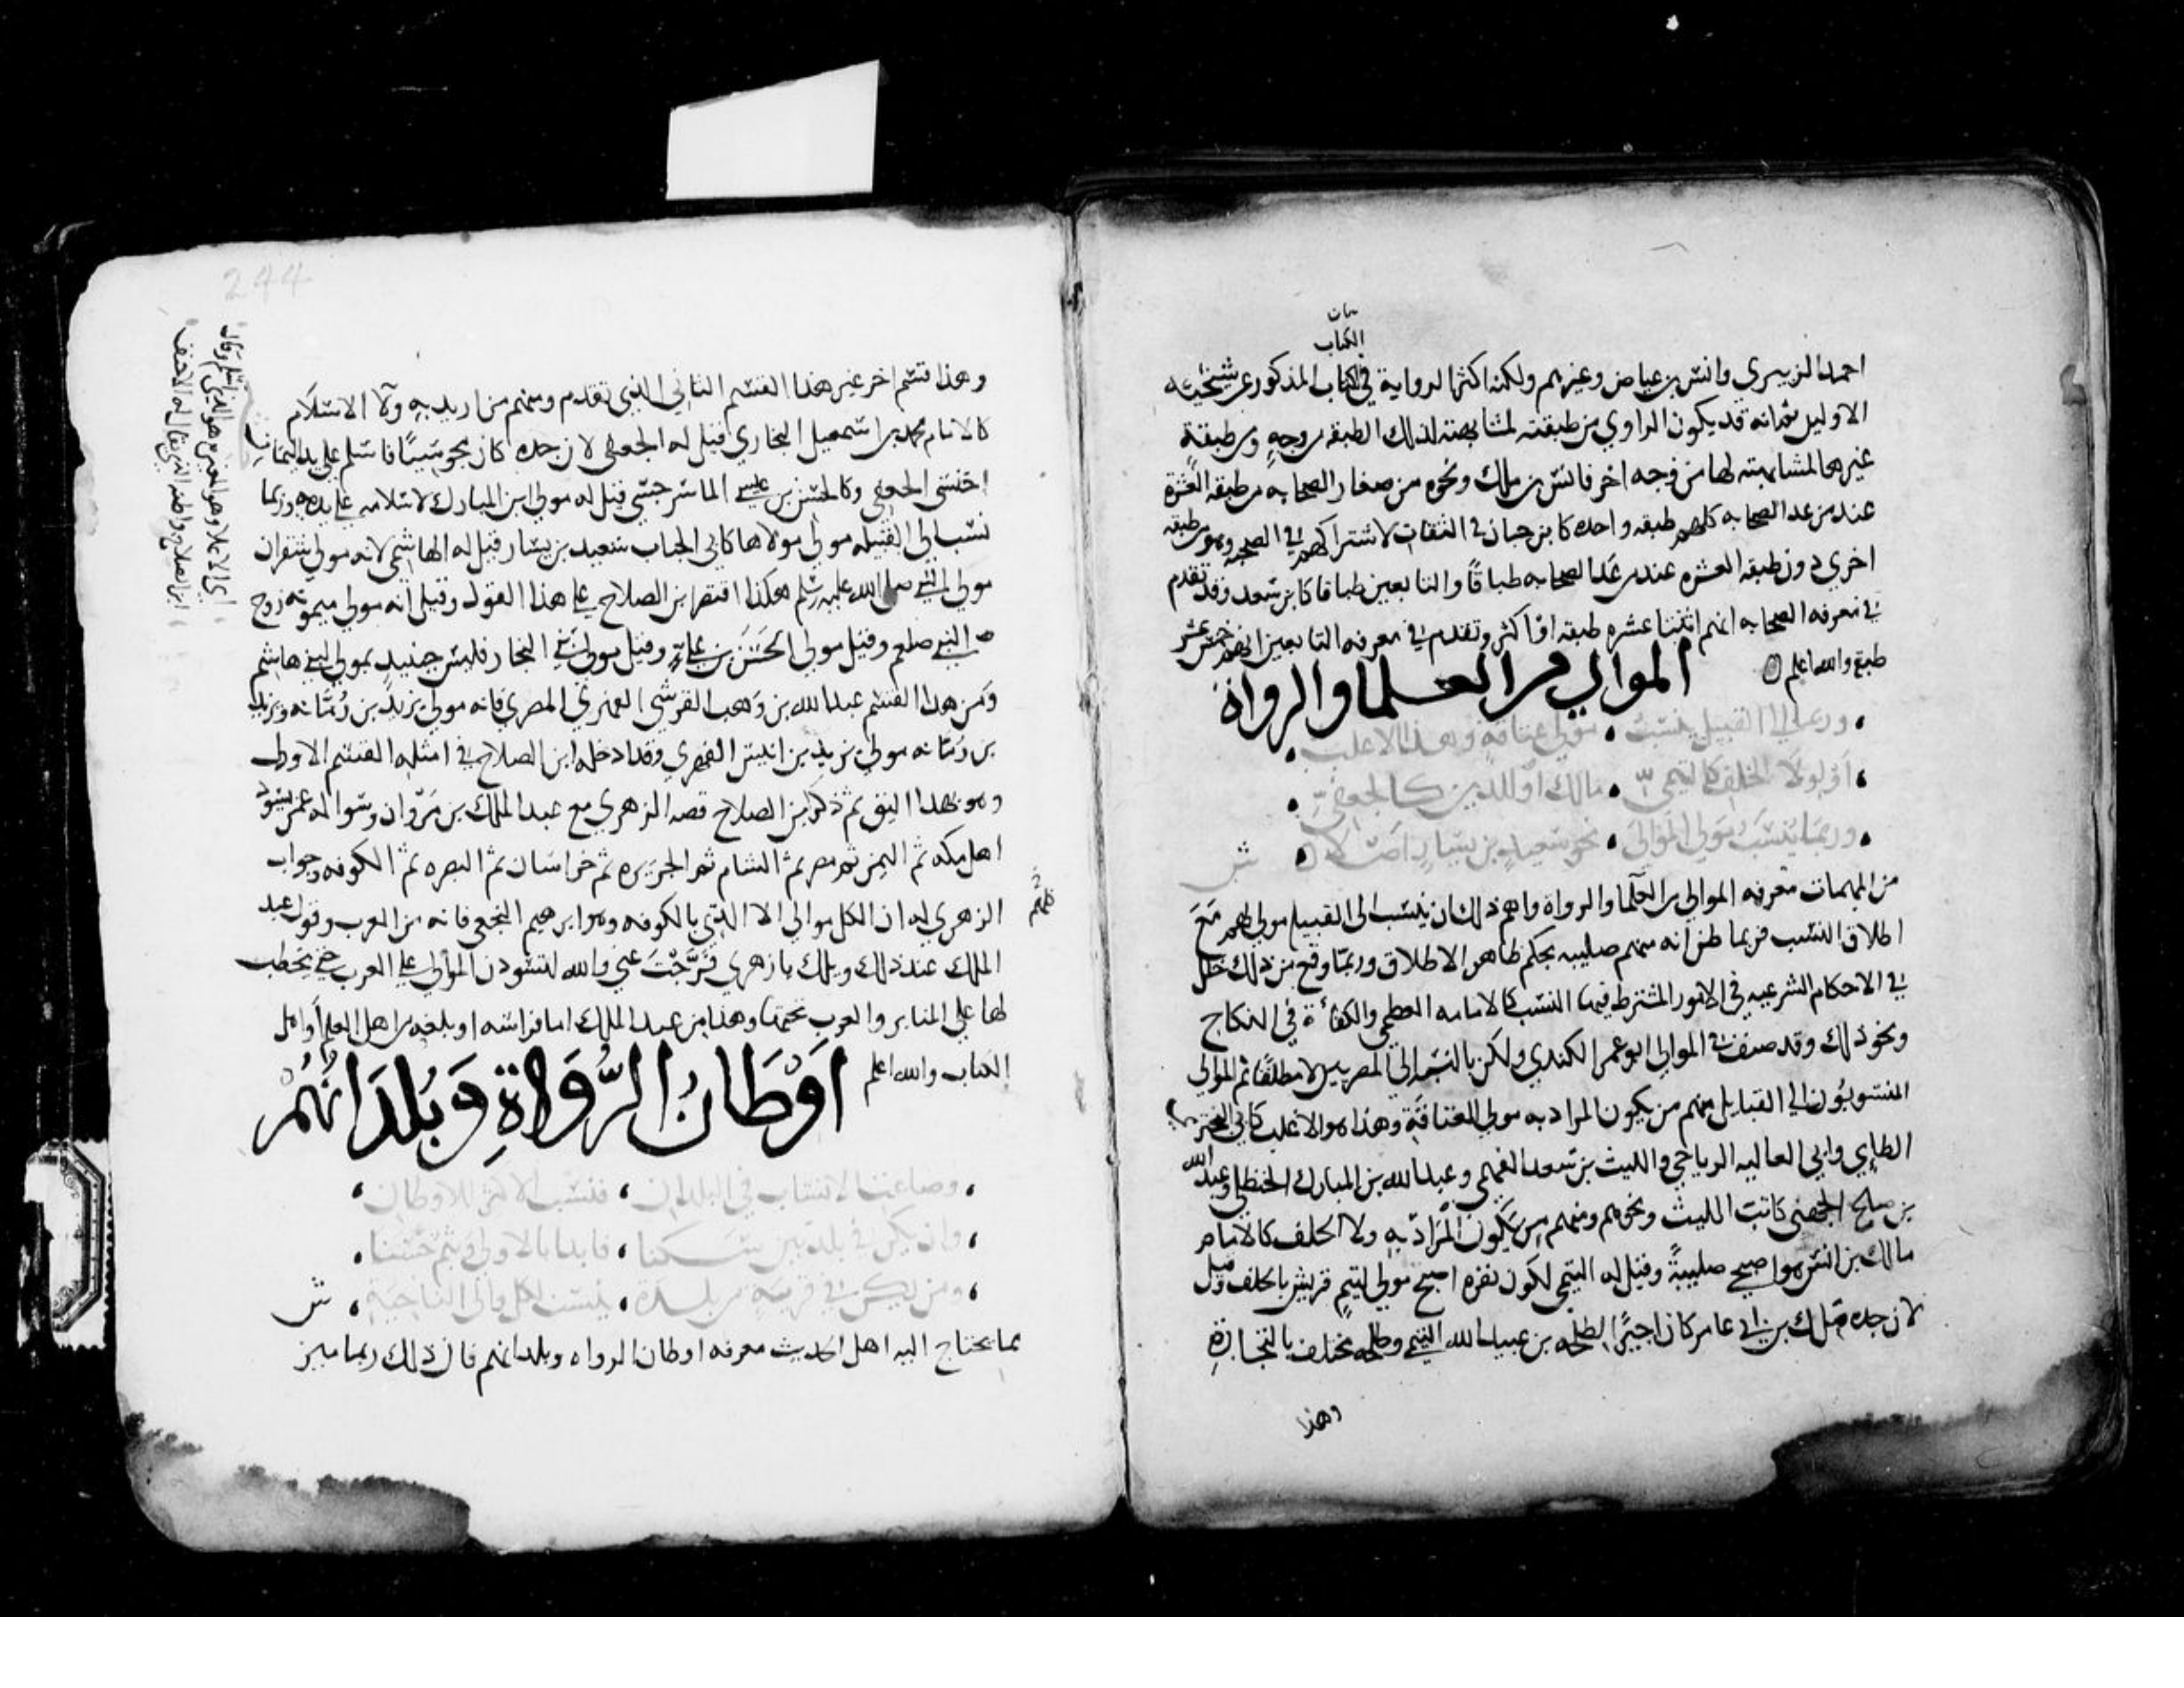 بيان
الكتاب
احمد الزبيري وانس بن عياض وغيرهم ولكنه اكثر الرواية في الكتاب المذكور عن شيخيه
الاولين ثم انه قد يكون الراوي من طبقته لمشابهته لتلك الطبقه من وجهٍ ومن طبقةٍ
غيرها لمشابهته لها من وجه اخر فانس بن ملك ونحوه من صغار الصحابه من طبقه العشرة
عند من عد الصحابه كلهم طبقه واحده كابن حبان في الثقات لاشتراكهم في الصحبه وهو من طبقه
اخري دون طبقه العشره عند من عد الصحابه طباقًا والتابعين طباقا كابن سعد وقد تقدم
في معرفه الصحابه انهم اثنتا عشره طبقه او اكثر وتقدم في معرفه التابعين انهم خمس عشر
طبقه والله اعلم
الموالي من العلما والرواة
وربما الي القبيل ينسب مولي عتاقةٍ وهذا الاغلب
او لولاء الحلف كالتيمي مالك او للدين كالجعفي
وربما ينسب مولي الموالي نحو سعيد بن يسارٍ اصلا ش
من المهمات معرفه الموالي من العلما والرواة واهم ذلك ان ينسب الي القبيله مولي لهم مع
اطلاق النسب فربما ظن انه منهم صليبه بحكم ظاهر الاطلاق وربما وقع من ذلك خلل
في الاحكام الشرعيه في الامور المشترط فيها النسب كالامامه العظمي والكفاءة في النكاح
ونحو ذلك وقد صنف في الموالي ابو عمر الكندي ولكن بالنسبه الي المصريين لا مطلقًا ثم الموالي
المنسوبون الي القبايل منهم من يكون المراد به مولي العتاقة وهذا هو الاغلب كابي البختري
الطاءي وابي العاليه الرياحي والليث بن سعد الفهمي وعبد الله بن المبارك الحنظلي وعبد الله
بن صالح الجهني كاتب الليث ونحوهم ومنهم من يكون المراد به ولا الحلف كالامام
مالك بن انس هو اصبحي صليبةً وقيل له التيمي لكون نفره اصبح موالي لتيم قريش بالحلف وقيل
لان جده ملك بن ابي عامر كان اجيرًا لطلحه بن عبيد الله التيمي وطلحه يختلف بالتجارة
وهذا
244
وهذا قسم اخر غير هذا القسم الثاني الذي تقدم ومنهم من اريد به ولآ الاسلام
كالامام محمد بن اسمعيل البخاري قيل له الجعفي لان جده كان مجوسيًا فاسلم علي يد اليمان بن
اخنس الجعفي وكالحسن بن عيسي الماسرجسي قيل له مولي ابن المبارك لاسلامه علي يده وربما
نسب الي القبيله مولي مولاها كابي الحباب سعيد بن يسار قيل له الهاشمي لانه مولي شقران
مولي النبي صلي الله عليه وسلم هكذا اقتصر ابن الصلاح علي هذا القول وقيل انه مولي ميمونه زوج
النبي صلعم وقيل مولي الحسن بن عليّ وقيل مولي بني النجار فليس حينيد بمولي لبني هاشم
ومن هذا القسم عبد الله بن وهب القرشي الفهري المصري فانه مولي يزيد بن رمانه ويزيد
بن رمانه مولي يزيد بن انيس الفهري وقد ادخله ابن الصلاح في امثله القسم الاول
وهو بهذا اليق ثم ذكر ابن الصلاح قصه الزهري مع عبد الملك بن مروان وسواله عمن يسود
اهل مكه ثم اليمن ثم مصر ثم الشام ثم الجزيره ثم خراسان ثم البصره ثم الكوفه وجواب
الزهري له ان الكل موالي الا الذي بالكوفه وهو ابرهيم النخعي فانه من العرب وقول عبد
كلهم
الملك عند ذلك ويلك يا زهري فرّجت عني والله لتسودن الموالي علي العرب حتي يخطب
لها علي المنابر والعرب تحتها وهذا من عبد الملك اما فراسه او بلغه من اهل العلم او اهل
الكتاب والله اعلم
اَوْطَانُ الرُّوَاةِ وَبُلْدَانُهُمْ
وضاعت الانساب في البلدان فنسب الاكثر للاوطان
وان يكن في بلدتين سكنا فابدا بالاولي وبثم حسنا
ومن يكن في قريةٍ من بلدة ينسب لكل والي الناحية ش
مما يحتاج اليه اهل الحديث معرفه اوطان الرواه وبلدانهم فان ذلك ربما ميز